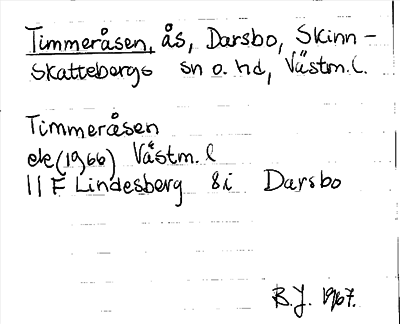 Timmeråsen, ås, Darsbo, Skinn-
skattebergs sn o. hd, Västm. l.
Timmeråsen
ek (1966) Västm. l
11 F Lindesberg 8i Darsbo
B.J. 1967.